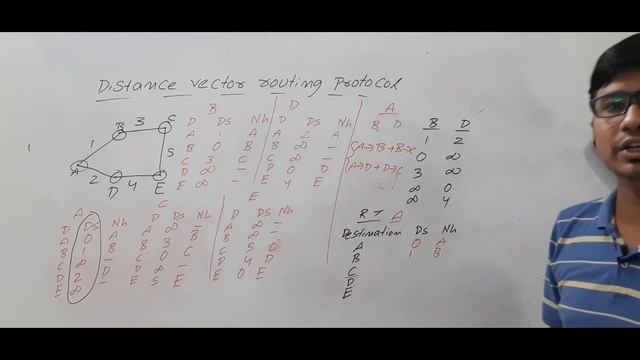 Distance vector routing Protocol
B 3 C
1
A
5
2
D 4 E
B
D Ds Nh
A 1 A
B 0 B
C 3 C
D ∞ –
E ∞ –
D
D Ds Nh
A 2 A
B ∞ –
C ∞ –
D 0 D
E 4 E
A
B, D
A→B+B→X
A→D+D→X
B D
1 2
0 ∞
3 ∞
∞ 0
∞ 4
A
D Ds Nh
A 0 A
B 1 B
C ∞ –
D 2 D
E ∞ –
C
D Ds Nh
A ∞ –
B 3 B
C 0 C
D ∞ –
E 5 E
E
D Ds Nh
A ∞ –
B ∞ –
C 5 C
D 4 D
E 0 E
RT A
Destination Ds Nh
A 0 A
B 1 B
C
D
E